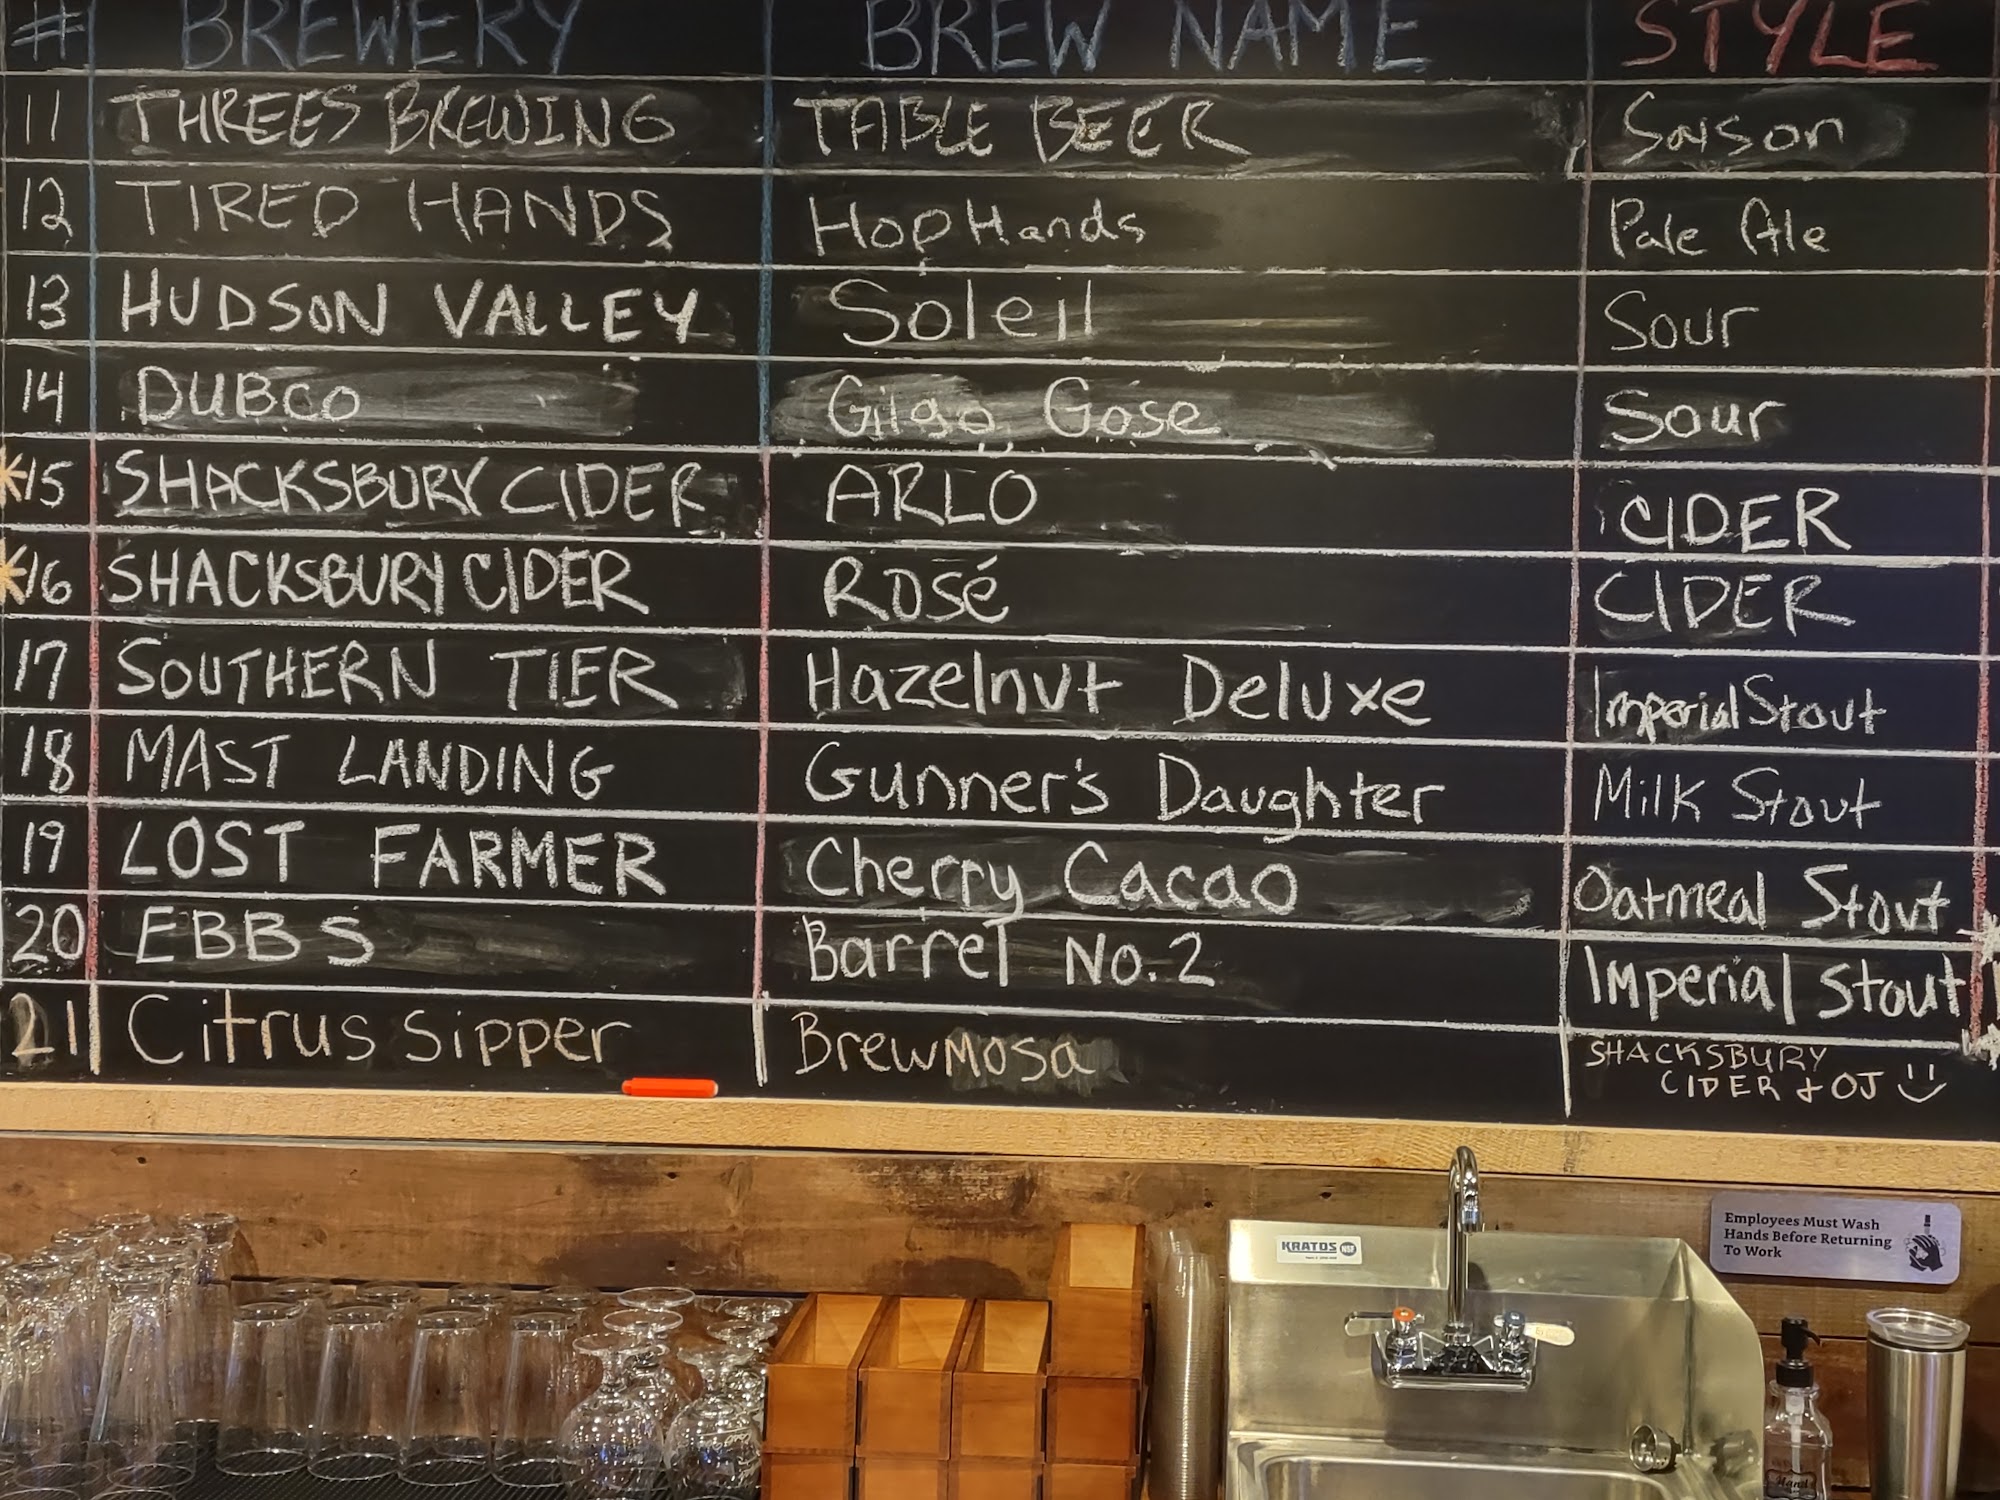 # BREWERY BREW NAME STYLE
11 THREES BREWING TABLE BEER Saison
12 TIRED HANDS HopHands Pale Ale
13 HUDSON VALLEY Soleil Sour
14 DUBCO Gilgo Gose Sour
15 SHACKSBURY CIDER ARLO CIDER
16 SHACKSBURY CIDER ROSé CIDER
17 SOUTHERN TIER Hazelnut Deluxe Imperial Stout
18 MAST LANDING Gunner's Daughter Milk Stout
19 LOST FARMER Cherry Cacao Oatmeal Stout
20 EBBS Barrel No.2 Imperial Stout
21 Citrus Sipper Brewmosa SHACKSBURY
CIDER + OJ
Employees Must Wash
Hands Before Returning
To Work
KRATOS NSF
Hand